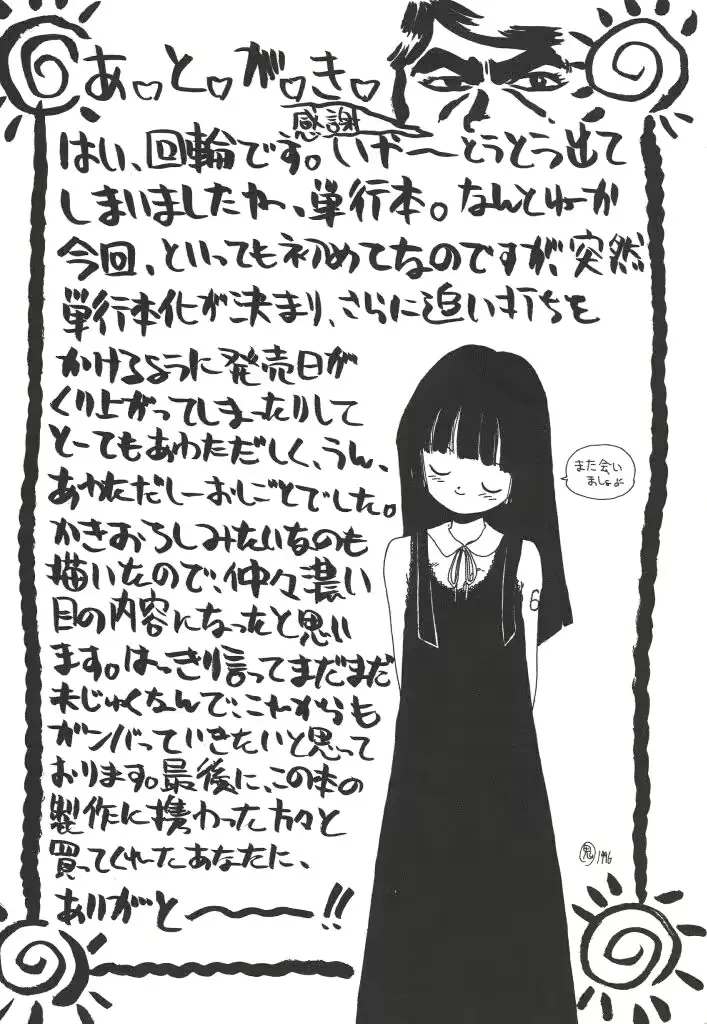 あ、と、が、き、
感謝
はい、回輪です。いやーとうとう出て
しまいましたねー、単行本。なんとゆーか
今回、といっても初めてなのですが、突然
単行本化が決まり、さらに追い打ちを
かけるように発売日が
くり上がってしまったりして
とーてもあわただしく、うん、
あわただしーおしごとでした。
かきおろしみたいなのも
描いたので、仲々濃い
目の内容になったと思い
ます。はっきり言ってまだまだ
未じゅくなんで、これからも
ガンバっていきたいと思って
おります。最後に、この本の
製作に携わった方々と
買ってくれたあなたに、
ありがと〜!!
また会い
ましょよ
6
鬼 1996